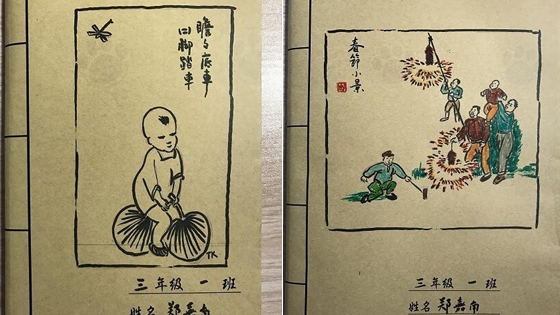 瞻々底車
(二)脚踏車
TK
三年級 一班
姓名 郑嘉
春節小景
三年級 一班
姓名 郑嘉